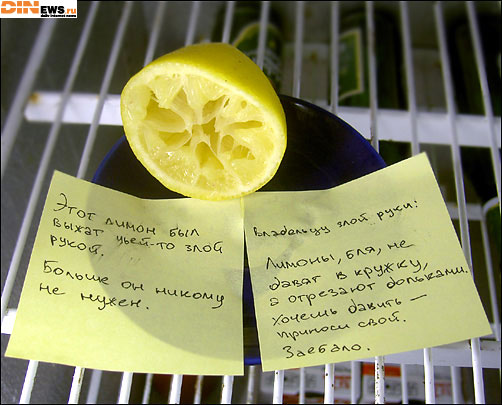 DINEWS.RU
daily internet news
Этот лимон был
выжат чьей-то злой
рукой.
Больше он никому
не нужен.
Владельцу злой руки:
Лимоны, бля, не
давят в кружку,
а отрезают дольками.
Хочешь давить —
приноси свой.
Заебало.